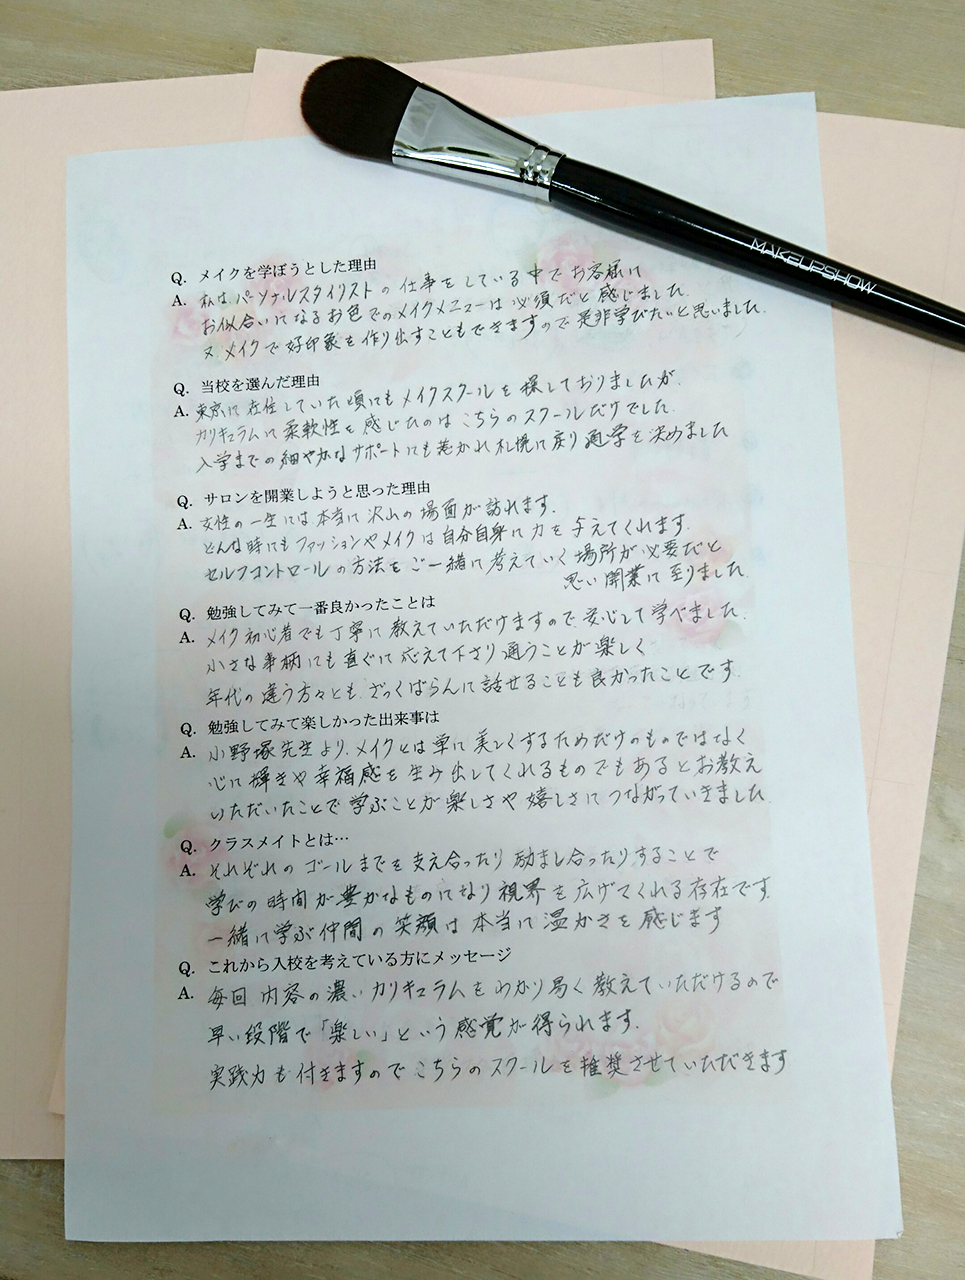 MAKEUPSHOW
Q. メイクを学ぼうとした理由
A. 私は、パーソナルスタイリストの仕事をしている中でお客様に
お似合いになるお色でのメイクメニューは必須だと感じました。
又、メイクで好印象を作り出すこともできますので是非学びたいと思いました。
Q. 当校を選んだ理由
A. 東京に在住していた頃にもメイクスクールを探しておりましたが、
カリキュラムに柔軟性を感じたのはこちらのスクールだけでした。
入学までの細やかなサポートにも惹かれ札幌に戻り通学を決めました
Q. サロンを開業しようと思った理由
A. 女性の一生には本当に沢山の場面が訪れます。
どんな時にもファッションやメイクは自分自身に力を与えてくれます。
セルフコントロールの方法をご一緒に考えていく場所が必要だと
思い開業に至りました。
Q. 勉強してみて一番良かったことは
A. メイク初心者でも丁寧に教えていただけますので安心して学べました。
小さな事柄にも直ぐに応えて下さり通うことが楽しく
年代の違う方々とも、ざっくばらんに話せることも良かったことです。
Q. 勉強してみて楽しかった出来事は
A. 小野塚先生より、メイクとは単に美しくするためだけのものではなく
心に輝きや幸福感を生み出してくれるものでもあるとお教え
いただいたことで学ぶことが楽しさや嬉しさにつながっていきました。
Q. クラスメイトとは…
A. それぞれのゴールまでを支え合ったり励まし合ったりすることで
学びの時間が豊かなものになり視界を広げてくれる存在です。
一緒に学ぶ仲間の笑顔は本当に温かさを感じます
Q. これから入校を考えている方にメッセージ
A. 毎回内容の濃いカリキュラムをわかり易く教えていただけるので
早い段階で「楽しい」という感覚が得られます。
実践力も付きますのでこちらのスクールを推奨させていただきます